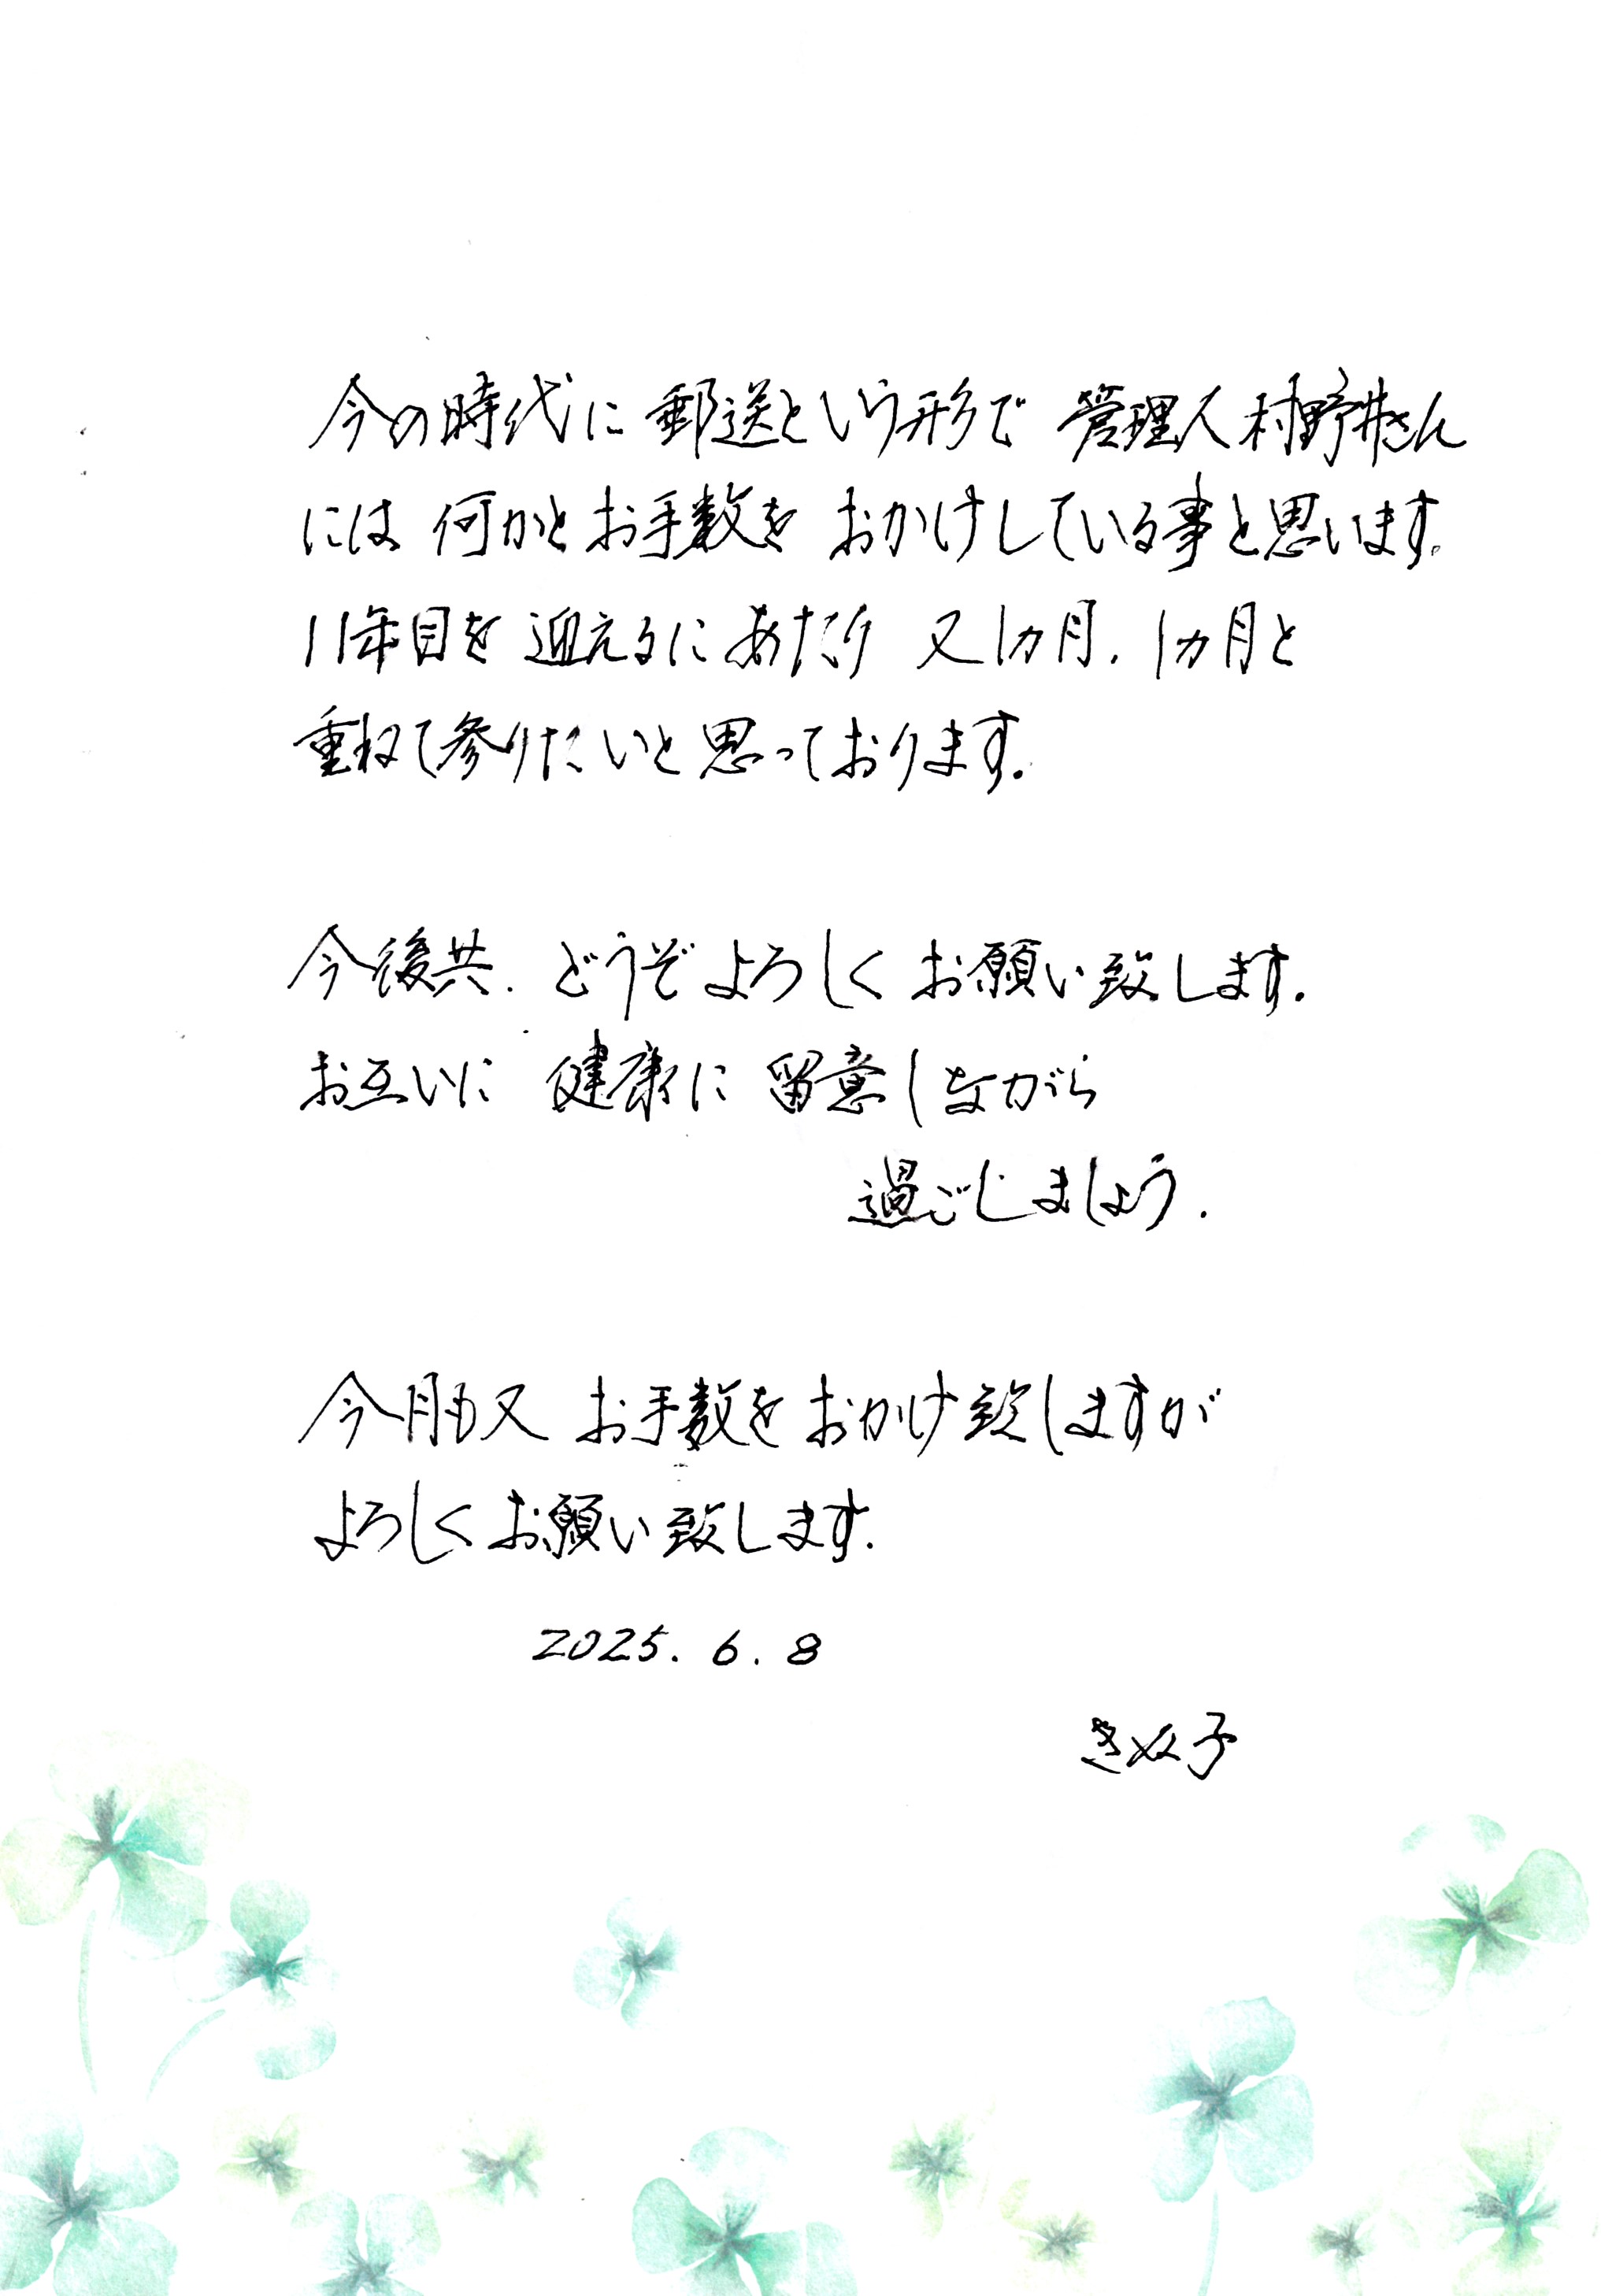 今の時代に郵送という形で 管理人村野井さん
には 何かとお手数を おかけしている事と思います。
11年目を 迎えるにあたり 又1ヵ月. 1ヵ月と
重ねて参りたいと思っております.
今後共. どうぞよろしく お願い致します.
お互いに 健康に 留意しながら
過ごしましょう.
今月も又 お手数をおかけ致しますが
よろしくお願い致します.
2025. 6. 8
きぬ子